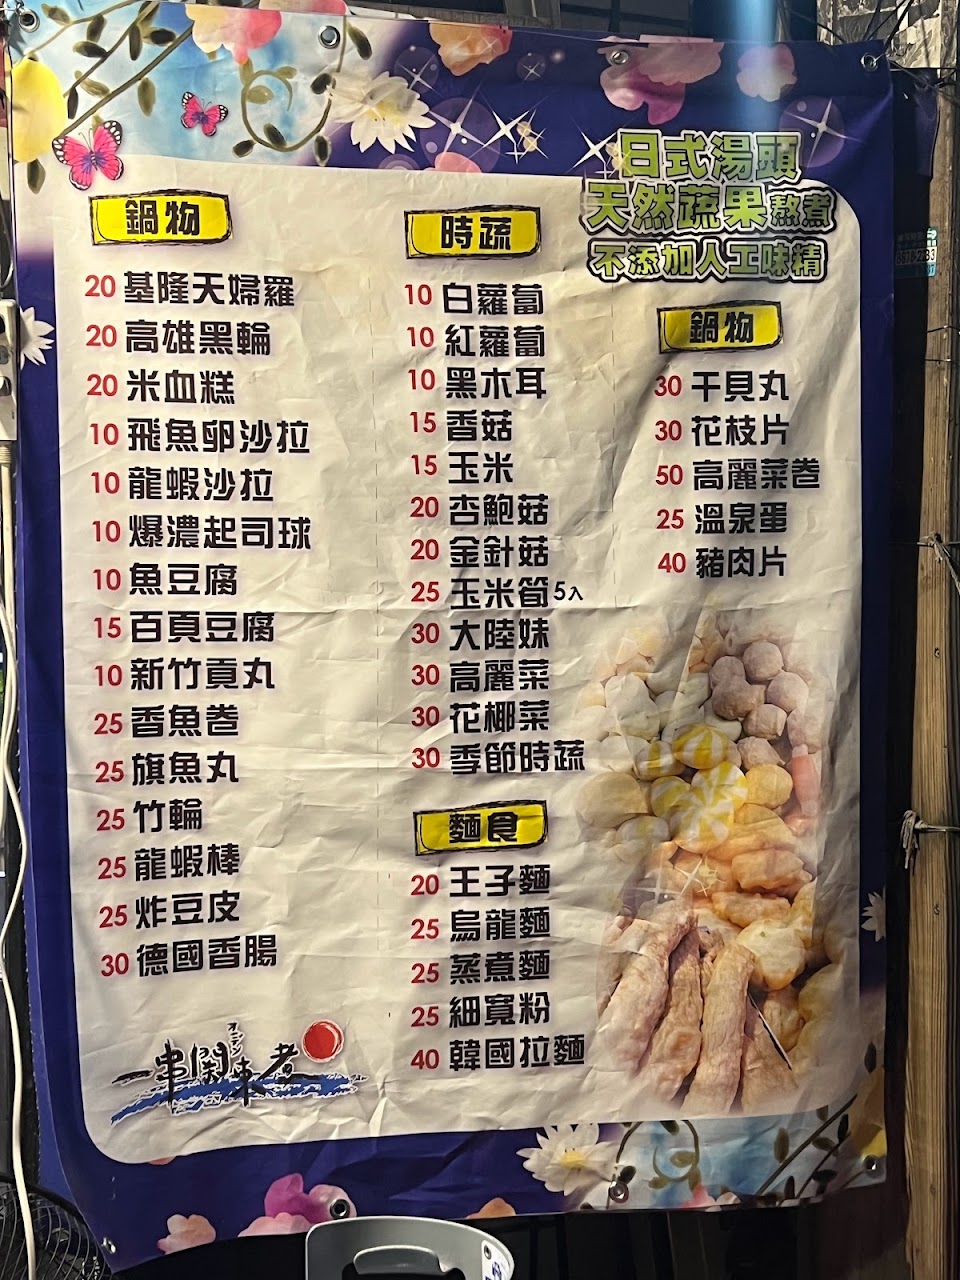 日式湯頭
天然蔬果熬煮
不添加人工味精
鍋物
20 基隆天婦羅
20 高雄黑輪
20 米血糕
10 飛魚卵沙拉
10 龍蝦沙拉
10 爆濃起司球
10 魚豆腐
15 百頁豆腐
10 新竹貢丸
25 香魚卷
25 旗魚丸
25 竹輪
25 龍蝦棒
25 炸豆皮
30 德國香腸
時蔬
10 白蘿蔔
10 紅蘿蔔
10 黑木耳
15 香菇
15 玉米
20 杏鮑菇
20 金針菇
25 玉米筍 5入
30 大陸妹
30 高麗菜
30 花椰菜
30 季節時蔬
麵食
20 王子麵
25 烏龍麵
25 蒸煮麵
25 細寬粉
40 韓國拉麵
鍋物
30 干貝丸
30 花枝片
50 高麗菜卷
25 溫泉蛋
40 豬肉片
オデン
一串関東煮